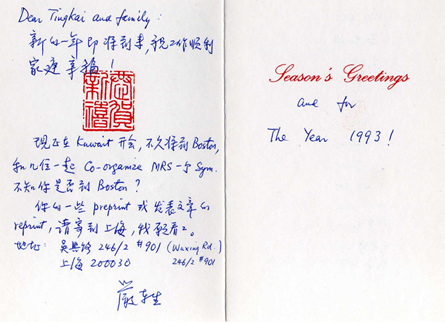 Dear Tingkai and family:
新的一年即将到来,祝工作顺利
家庭幸福!
恭賀新禧
现在在 Kuwait 开会,不久将到 Boston,
和几位一起 Co-organize MRS 一个 Sym.
不知你是否到 Boston?
你的一些 preprint 或发表文章的
reprint, 请寄到上海,我 看看。
地址: 吴兴路 246/2 #901 (Wuxing Rd.
上海 200030 246/2 #901
严东生
Season's Greetings
and for
The Year 1993!